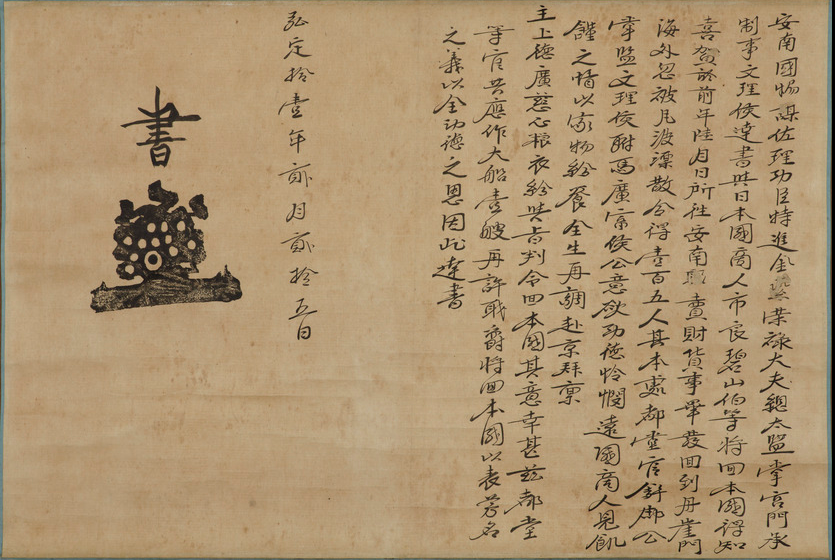 安南國賜謀佐理功臣特進金紫榮祿大夫總太監掌宮門承
制事文理侯達書與日本國商人市良碧山伯等將回本國得知
喜賀於前年陸月日所往安南販賣財貨事畢發回到丹崖門
海外忽被風波漂散分得壹百五人其本處都堂官舒郡公
掌監文理侯駙馬廣富侯公意欲功德怜憫遠國商人見飢
饉之情以家物給養全生再調赴京拜稟
主上德廣慈心粮衣給與旨判令回本國其意幸甚茲都堂
等官共應作大船壹艘再許職爵將回本國以表芳名
之義以全功德之恩因此達書
弘定拾壹年貳月貳拾五日
書